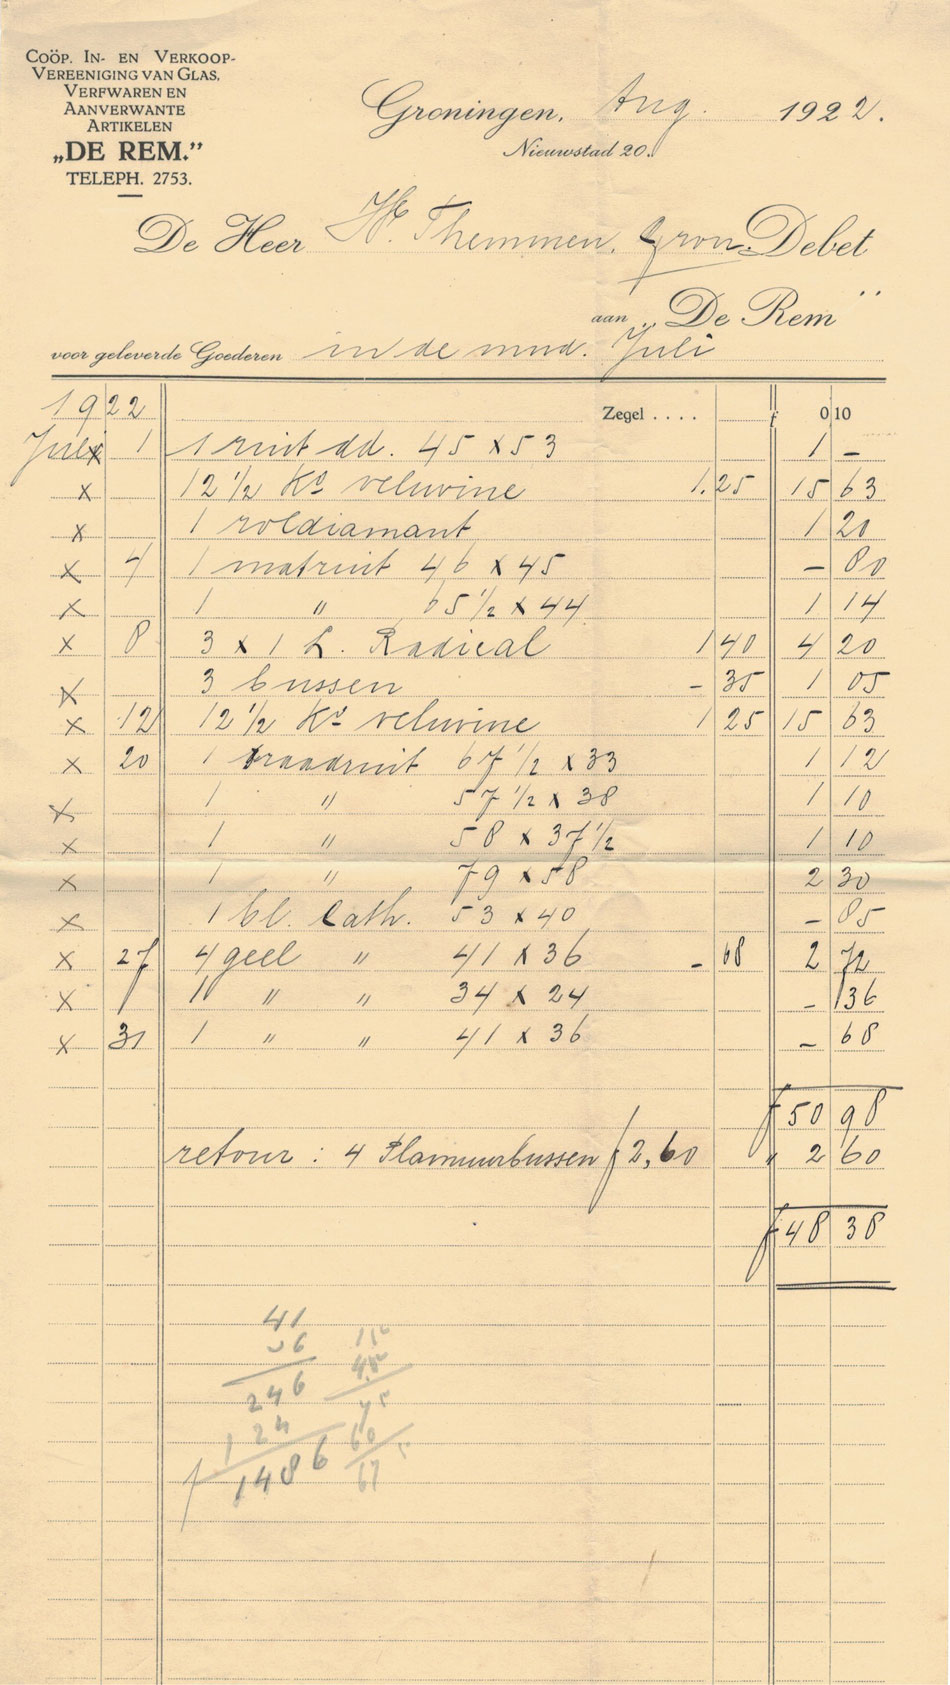 Coöp. In- en Verkoop-
Vereeniging van Glas,
Verfwaren en
Aanverwante
Artikelen
„DE REM.”
TELEPH. 2753.
Groningen, Aug. 1922.
Nieuwstad 20.
De Heer H. Themmen. Gron. Debet
aan „De Rem”
voor geleverde Goederen in de mnd. Juli
1922 Zegel .... f 0 10
Juli x 1 1 ruit dd. 45 x 53 1 –
x 12 1/2 Ko veluvine 1.25 15 63
x 1 roldiamant 1 20
x 4 1 matruit 46 x 45 – 80
x 1 " 65 1/2 x 44 1 14
x 8 3 x 1 L. Radical 1 40 4 20
x 3 bussen – 35 1 05
x 12 12 1/2 Ko veluvine 1 25 15 63
x 20 1 draadruit 67 1/2 x 33 1 12
x 1 " 57 1/2 x 38 1 10
x 1 " 58 x 37 1/2 1 10
x 1 " 79 x 58 2 30
x 1 bl. Cath. 53 x 40 – 85
x 27 4 geel " 41 x 36 – 68 2 72
x 1 " " 34 x 24 – 36
x 31 1 " " 41 x 36 – 68
f 50 98
retour : 4 Plamuurbussen f 2,60 " 2 60
f 48 38
41
36
246
124
1486